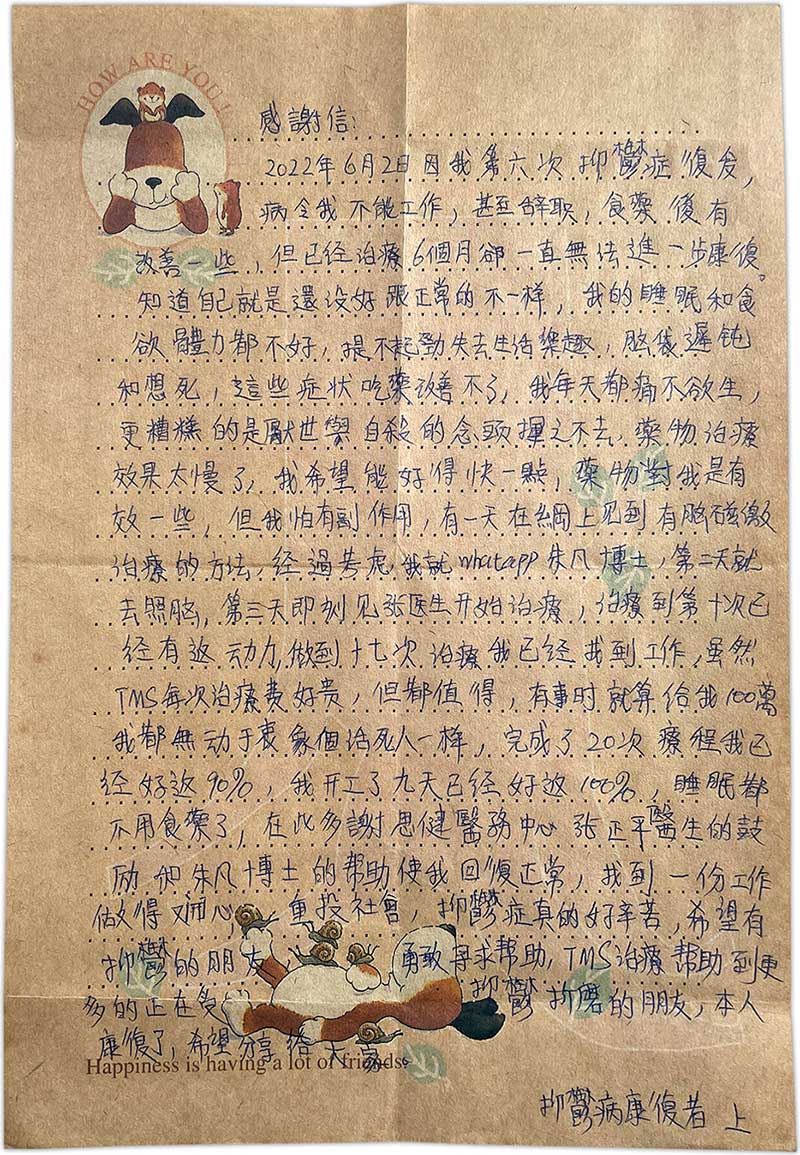 HOW ARE YOU!
感謝信:
2022年6月2日因我第六次抑鬱症復发,
病令我不能工作,甚至辞职,食藥後有
改善一些,但已经治療6個月卻一直無法進一步康復。
知道自己就是還没好跟正常的不一样,我的睡眠和食
欲體力都不好,提不起勁失去生活樂趣,脑袋遲钝
和想死,這些症状吃藥改善不了,我每天都痛不欲生,
更糟糕的是厭世與自殺的念頭揮之不去,藥物治療
效果太慢了,我希望能好得快一點,藥物對我是有
效一些,但我怕有副作用,有一天在網上见到有脑磁激
治療的方法,经過考虑我就whatapp朱凡博士,第二天就
去照脑,第三天即刻见张医生开始治療,治療到第十次已
经有返动力,做到十七次治療我已经找到工作,虽然
TMS每次治療费好贵,但都值得,有事时就算给我100萬
我都無动于衷象個活死人一样,完成了20次療程我已
经好返90%,我开工了九天已经好返100%,睡眠都
不用食藥了,在此多謝思健醫務中心张正平醫生的鼓
励和朱凡博士的帮助使我回復正常,找到一份工作
做得开心,重投社會,抑鬱症真的好辛苦,希望有
抑鬱的朋友,勇敢寻求帮助,TMS治療帮助到更
多的正在受抑鬱折磨的朋友,本人
康復了,希望分享给大家。
Happiness is having a lot of friends.
抑鬱病康復者 上